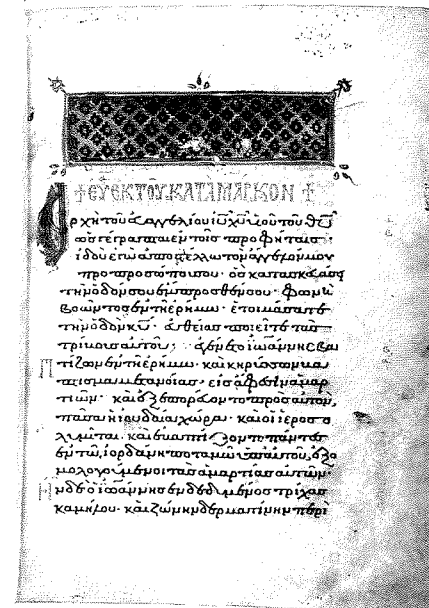 ☩ ΕΥ ΕΚ ΤΟΥ ΚΑΤΑ ΜΑΡΚΟΝ ☩
Ἀρχὴ τοῦ εὐαγγελίου ιυ χυ υἱοῦ τοῦ θυ
ὡς γέγραπται ἐν τοῖς προφήταις·
ἰδοὺ ἐγὼ ἀποστέλλω τὸν ἄγγελόν μου
πρὸ προσώπου σου· ὃς κατασκευάσει
τὴν ὁδόν σου ἔμπροσθέν σου· φωνὴ
βοῶντος ἐν τῇ ἐρήμω· ἑτοιμάσατε
τὴν ὁδὸν κυ· εὐθείας ποιεῖτε τὰς
τρίβους αὐτοῦ· ἐγένετο ἰωάννης βα
πτίζων ἐν τῇ ἐρήμω· καὶ κηρύσσων βά
πτισμα μετανοίας· εἰς ἄφεσιν ἁμαρ
τιῶν· καὶ ἐξεπορεύοντο πρὸς αὐτὸν
πᾶσα ἡ ἰουδαία χώρα· καὶ οἱ ἱεροσο
λυμῖται· καὶ ἐβαπτίζοντο πάντες
ἐν τῶ ἰορδάνη ποταμῶ ὑπ' αὐτοῦ· ἐξο
μολογούμενοι τὰς ἁμαρτίας αὐτῶν·
Ἦν δὲ ὁ ἰωάννης ἐνδεδυμένος τρίχας
καμήλου· καὶ ζώνην δερματίνην περὶ